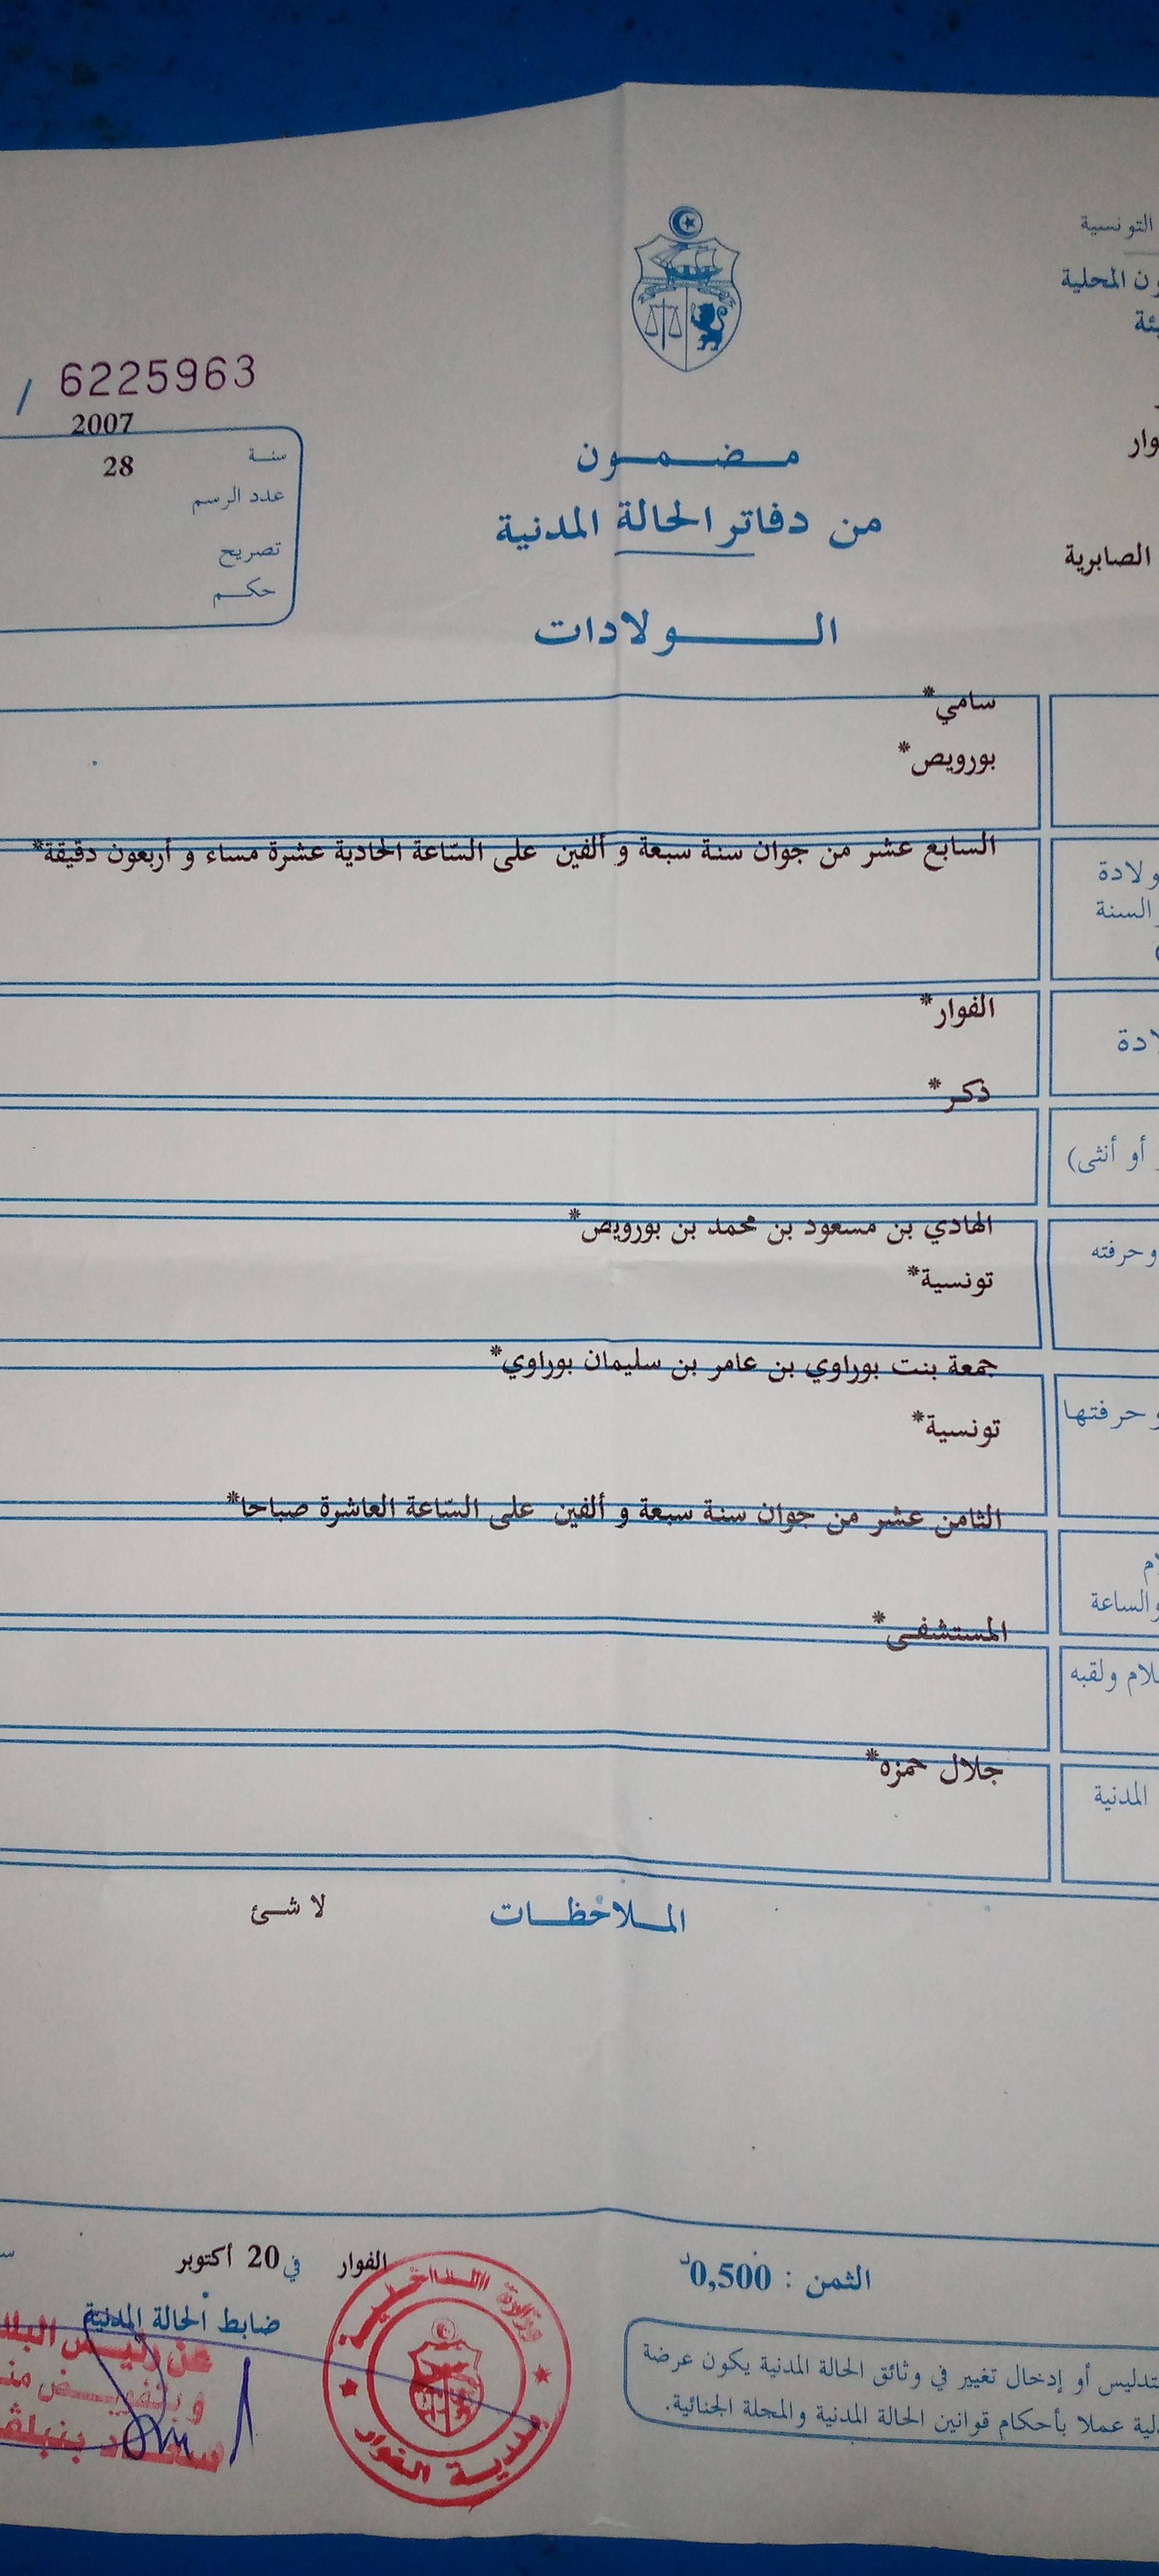 التونسية
المحلية
6225963 /
2007
سنة
28
عدد الرسم
تصريح
حكم
مضمون
من دفاتر الحالة المدنية
الصابرية
الولادات
سامي*
بورويص*
السابع عشر من جوان سنة سبعة و ألفين على السّاعة الحادية عشرة مساء و أربعون دقيقة*
السنة
الفوار*
ذكر*
أو أنثى)
الهادي بن مسعود بن محمد بن بورويص*
وحرفته
تونسية*
جمعة بنت بوراوي بن عامر بن سليمان بوراوي*
و حرفتها
تونسية*
الثامن عشر من جوان سنة سبعة و ألفين على السّاعة العاشرة صباحا*
والساعة
المستشفى*
ولقبه
جلال حمزه*
المدنية
الملاحظات
لا شئ
الفوار في 20 أكتوبر
الثمن : 0,500د
ضابط الحالة المدنية
عن رئيس
و بتفويض
وزارة الداخلية
بلدية الفوار
أو إدخال تغيير في وثائق الحالة المدنية يكون عرضة
عملا بأحكام قوانين الحالة المدنية والمجلة الجنائية.